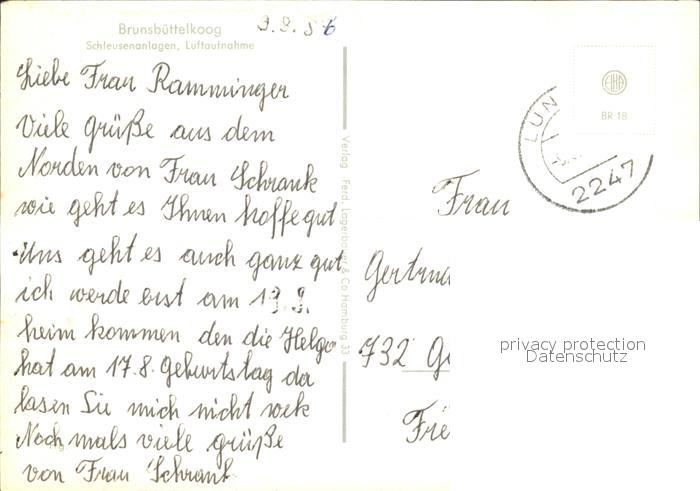 Brunsbüttelkoog
Schleusenanlagen, Luftaufnahme
9.9.86
Liebe Frau Ramminger
Viele grüße aus dem
Norden von Frau Schrank
wie geht es Ihnen hoffe gut
Uns geht es auch ganz gut
ich werde erst am 19.9.
heim kommen den die Helga
hat am 17.8. Geburtstag da
lasen Sie mich nicht wek
Noch mals viele grüße
von Frau Schrank
Verlag Ferd. Lagerbauer & Co Hamburg 33
EHA
BR 18
LUN
2247
Frau
Gertru
732 G
Fr
privacy protection
Datenschutz